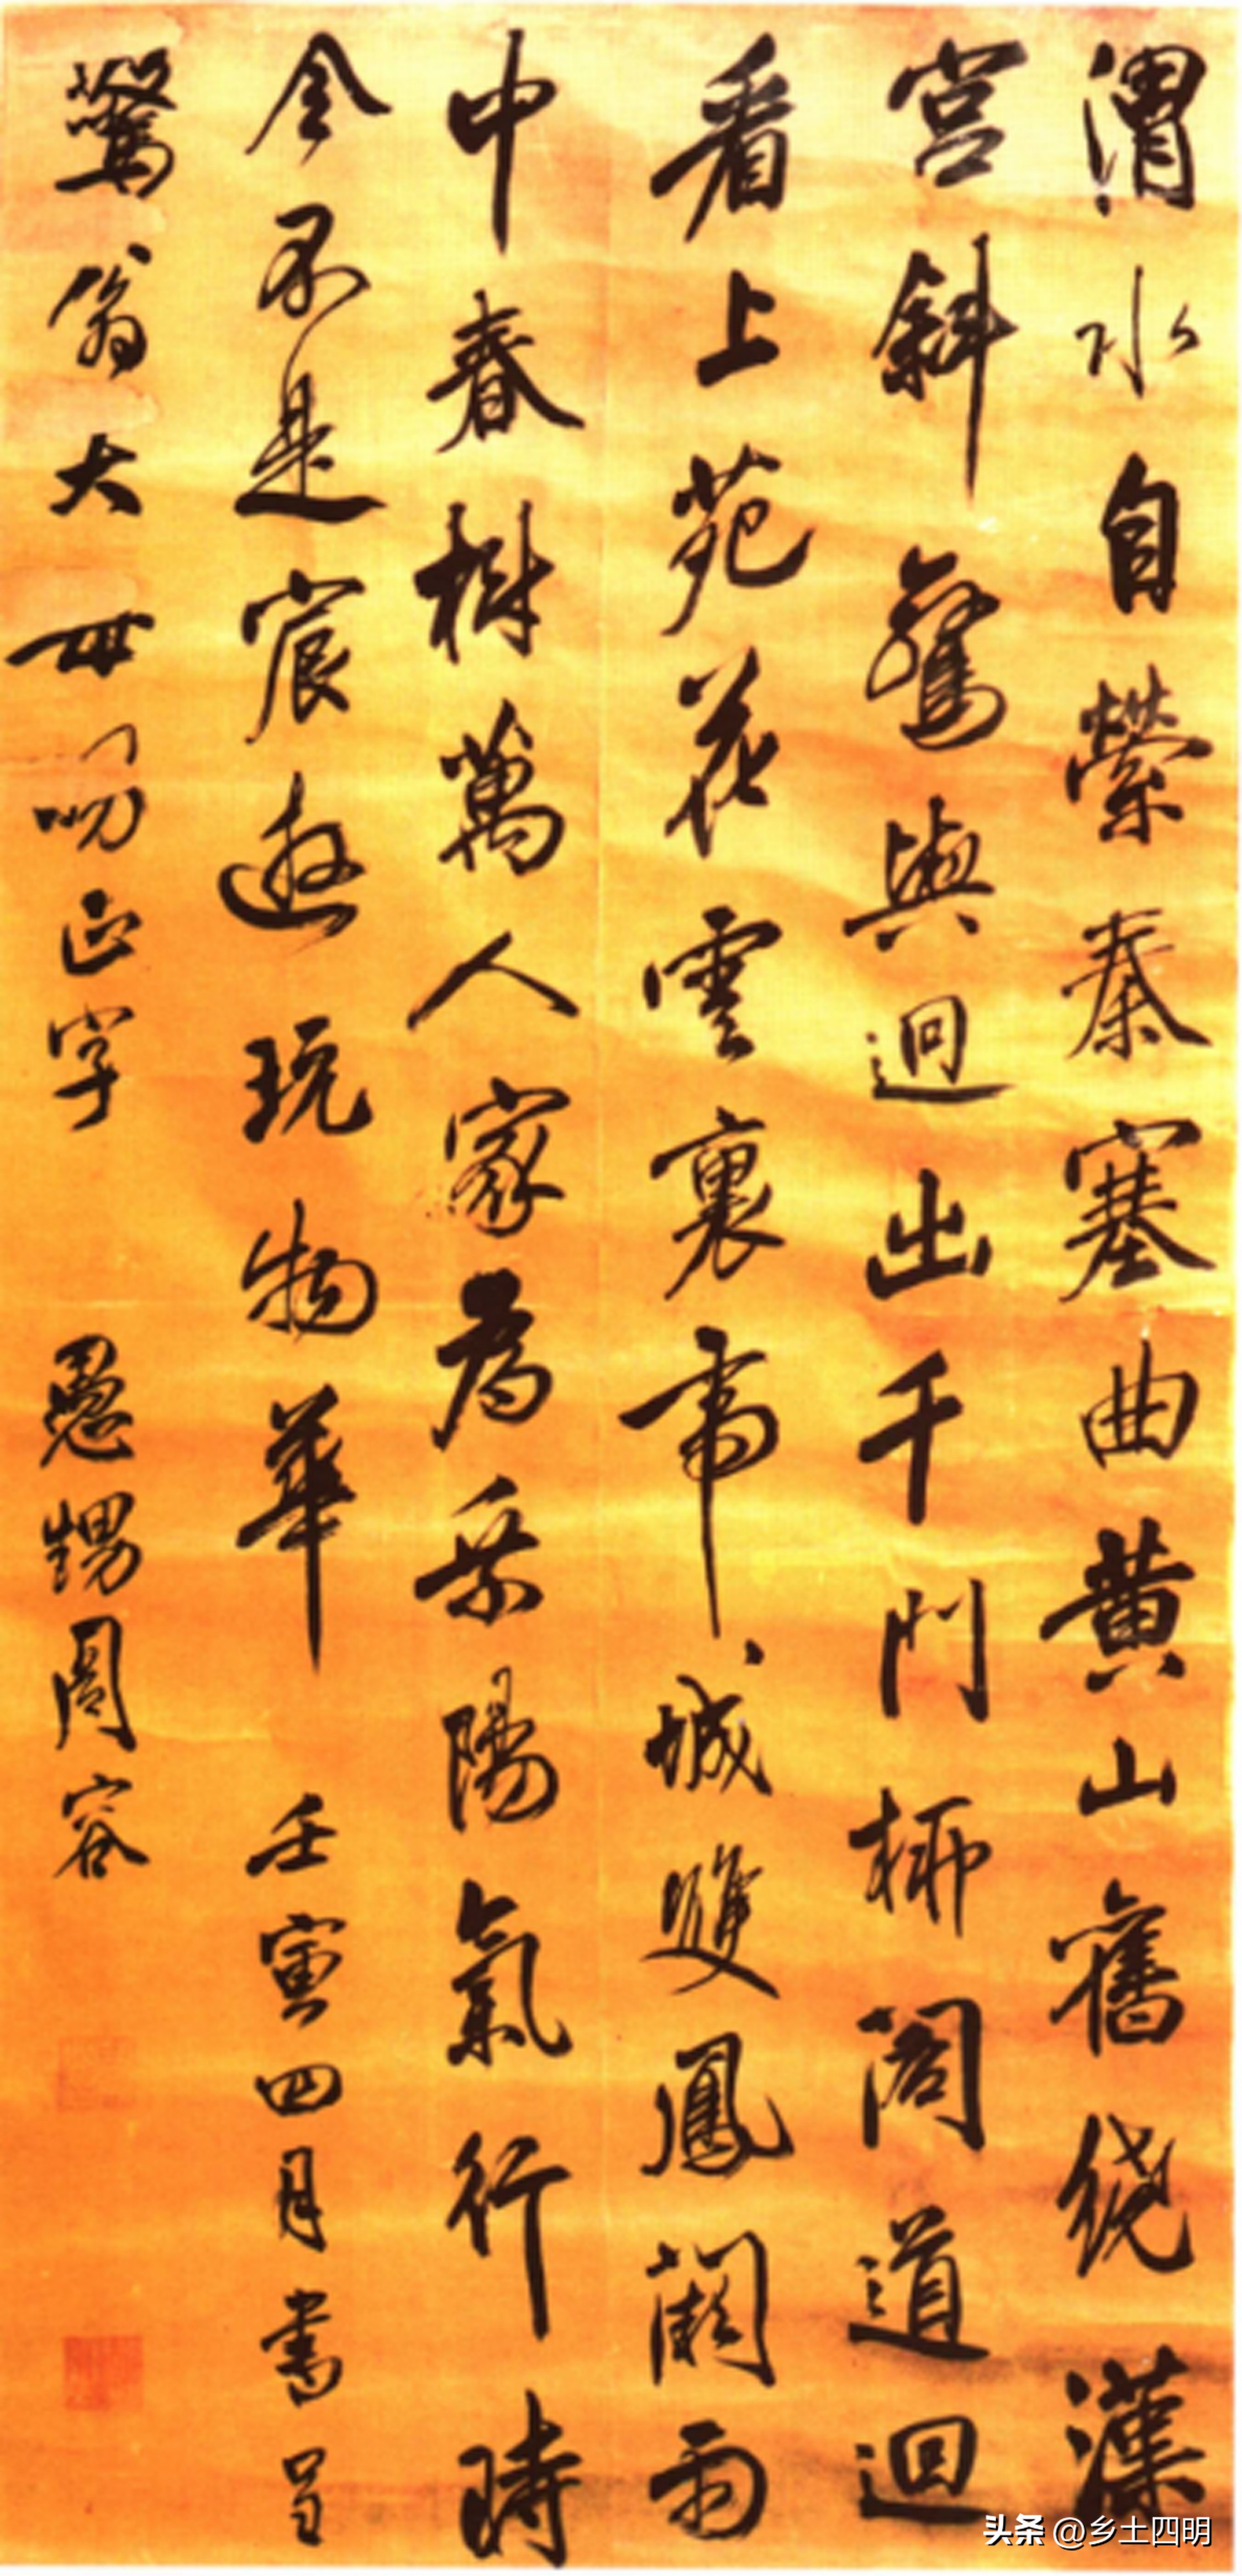 渭水自縈秦塞曲黄山舊繞漢
宫斜鑾輿迥出千門柳閣道迴
看上苑花雲裏帝城雙鳳闕雨
中春樹萬人家為乘陽氣行時
令不是宸遊玩物華 壬寅四月書呈
鷟翁大母 正字 愚甥周容
头条 @乡土四明